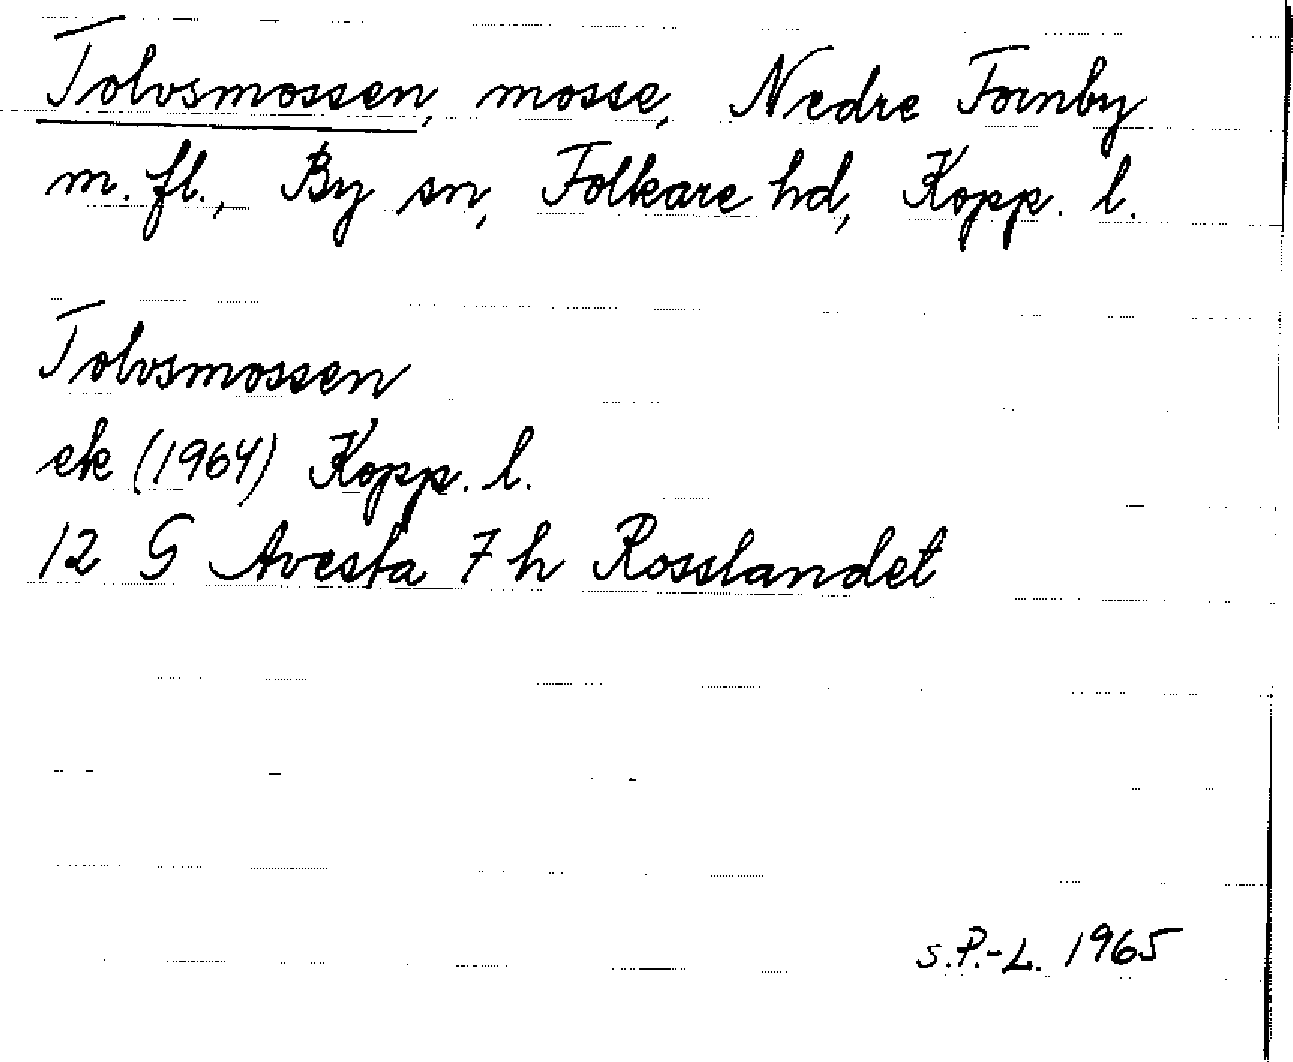 Tolvsmossen, mosse, Nedre Fornby
m. fl., By sn, Folkare hd, Kopp. l.
Tolvsmossen
ek (1964) Kopp. l.
12 G Avesta 7 h Rosslandet
S.P.-L. 1965